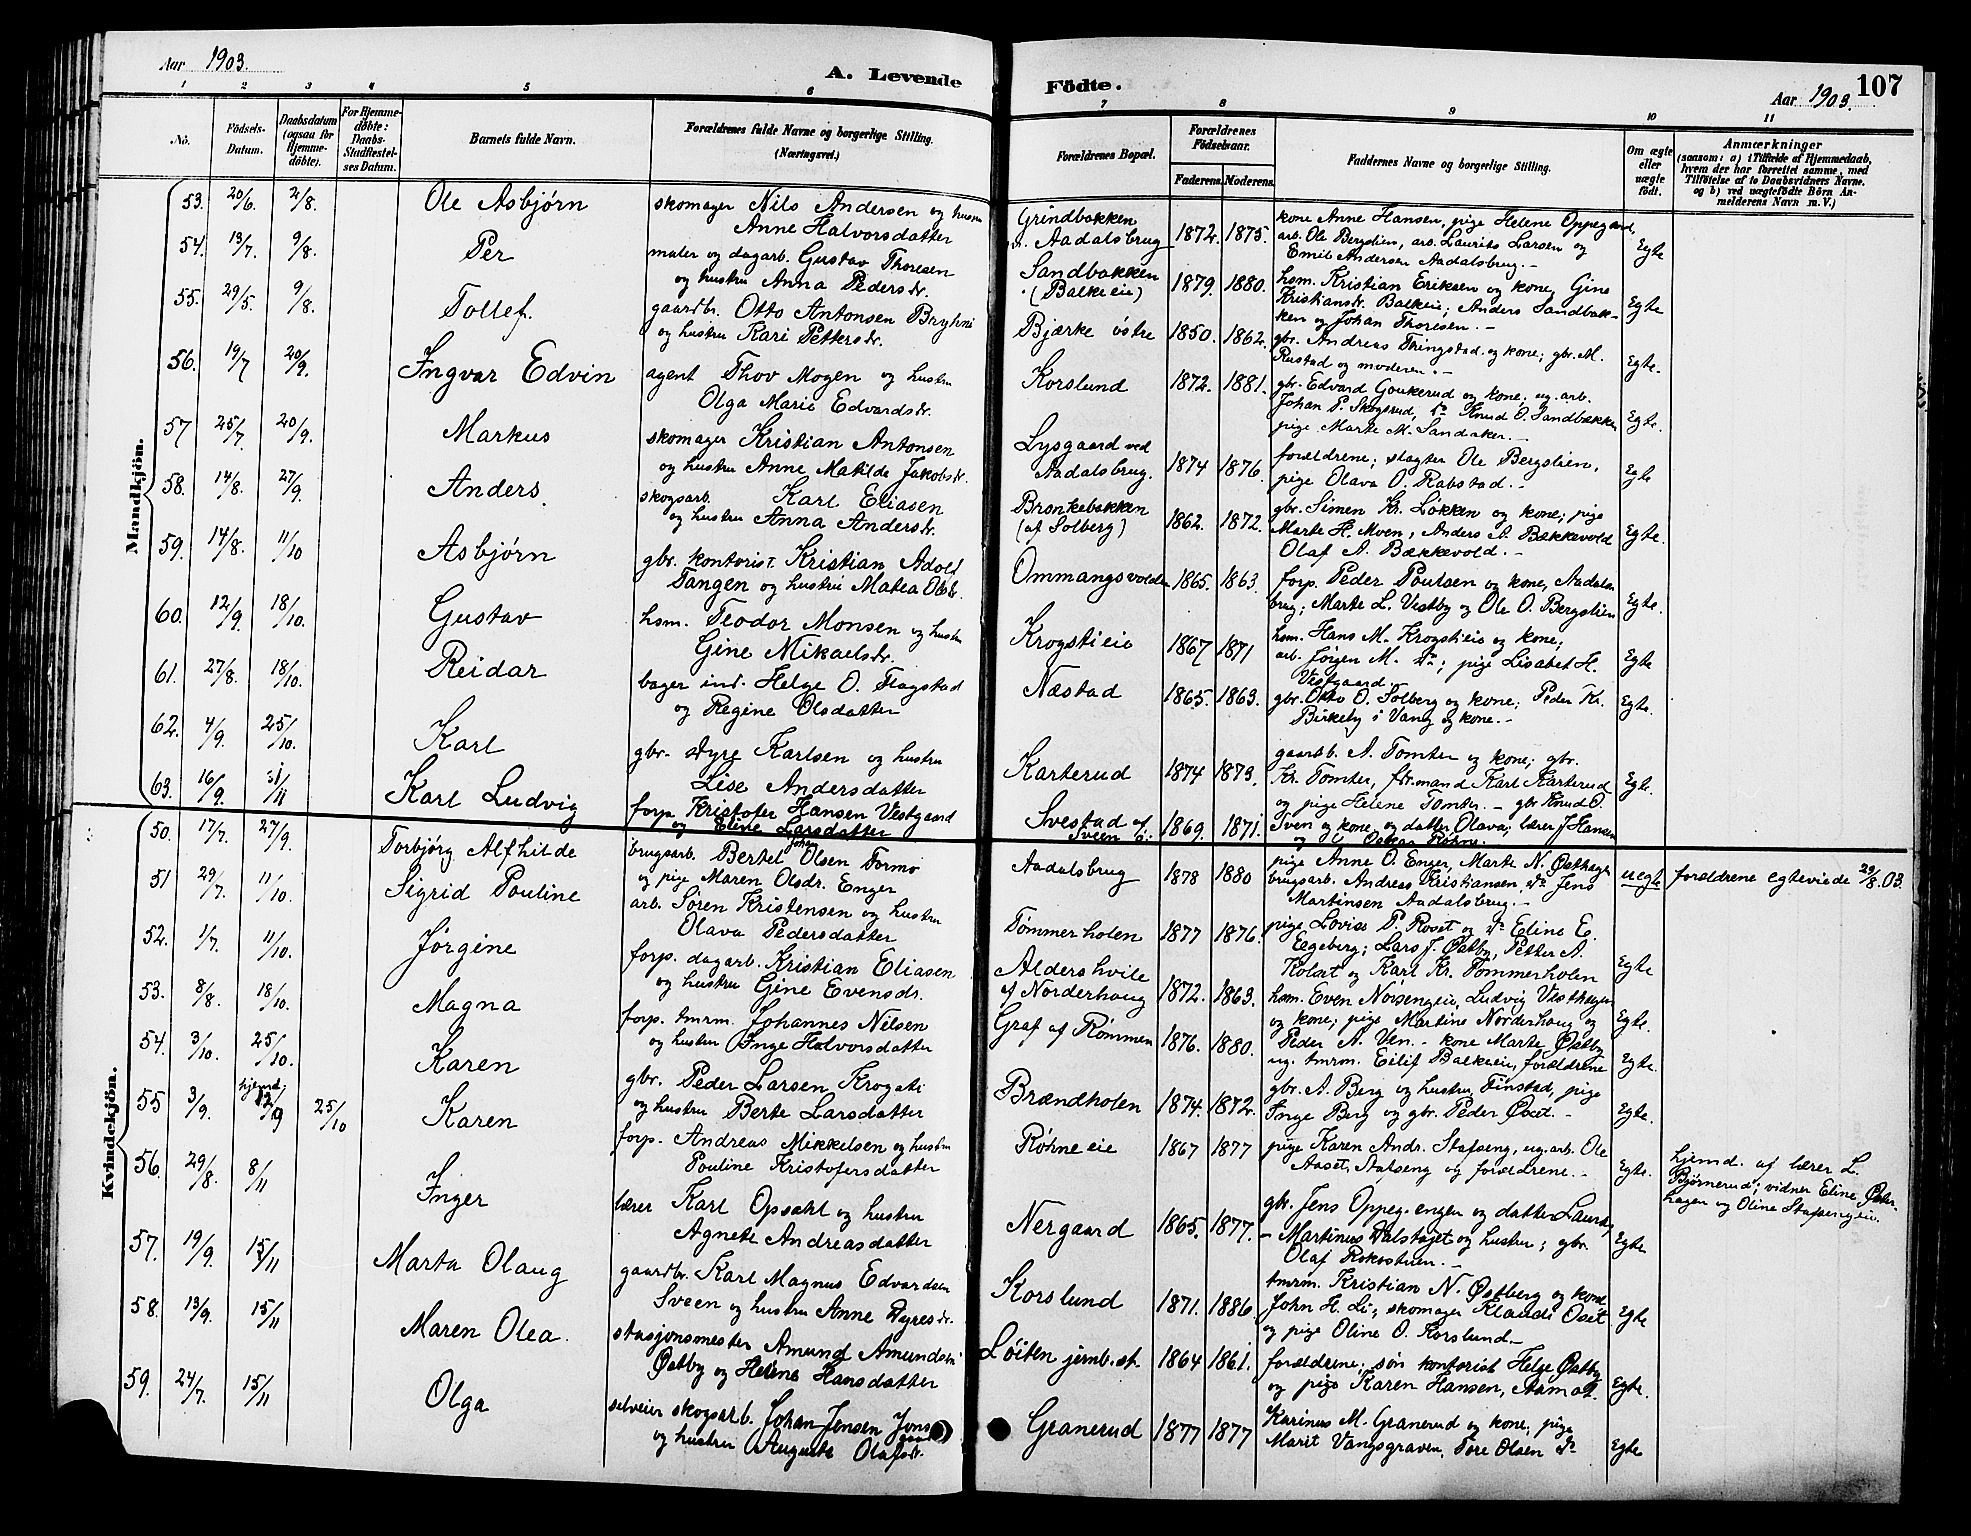 Aar 1903.
A. Levende
1 2 3 4 5 6
No.
Födsels-Datum.
Daabsdatum (ogsaa for Hjemmedöbte).
For Hjemmedöbte: Daabs-Stadfæstelses Datum.
Barnets fulde Navn.
Forældrenes fulde Navne og borgerlige Stilling. (Næringsvei.)
Mandkjön.
53. 20/6. 2/8. Ole Asbjørn skomager Nils Andersen og hustru
Anne Halvorsdatter
54. 13/7. 9/8. Per maler og dagarb. Gustav Thoresen
og hustru Anna Pedersdr.
55. 29/5 9/8. Tollef. gaardbr. Otto Antonsen Bryhni
og hustru Kari Pettersdr.
56. 19/7 20/9. Ingvar Edvin agent Thov Mogen og hustru
Olga Marie Edvardsdr.
57 25/7 20/9. Markus skomager Kristian Antonsen
og hustru Anne Matilde Jakobsdr.
58. 14/8. 27/9. Anders. skogsarb. Karl Eliasen
og hustru Anna Andersdr.
59. 14/8. 11/10 Asbjørn gbr. kontorist. Kristian Adolf
Tangen og hustru Matea Olsdr.
60. 12/9 18/10. Gustav hsm. Teodor Monsen og hustru
Gine Mikaelsdr.
61. 27/8. 18/10. Reidar bager ind. Helge O. Flagstad
og Regine Olsdatter
62. 4/9. 25/10. Karl gbr. Dyre Karlsen og hustru
Lise Andersdatter
63. 16/9 1/11 Karl Ludvig forp. Kristofer Hansen Vestgaard
og Eline Larsdatter
Kvindekjön.
50. 17/7. 27/9. Torbjørg Alfhilde brugsarb. Bertel Johan Olsen Formo
og pige Maren Olsdr. Enger
51 29/7. 11/10. Sigrid Pouline arb. Søren Kristensen og hustru
Olava Pedersdatter
52. 1/7. 11/10. Jørgine forp. dagarb. Kristian Eliasen
og hustru Gine Evensdr.
53. 8/8. 18/10. Magna forp. tmrm. Johannes Nilsen
og hustru Inge Halvorsdatter
54. 3/10. 25/10. Karen gbr. Peder Larsen Krogsti
og hustru Berte Larsdatter
55 3/9. hjemd. 12/9 25/10 Karen forp. Andreas Mikkelsen og hustru
Pouline Kristofersdatter
56. 29/8. 8/11 Inger lærer Karl Opsahl og hustru
Agnete Andreasdatter
57. 19/9. 15/11 Marta Olaug gaardbr. Karl Magnus Edvardsen
Sveen og hustru Anne Dyresdr.
58. 13/9. 15/11 Maren Olea. stasjonsmester Amund Amundsen
Østby og Helene Hansdatter
59. 24/7. 15/11 Olga selveier skogsarb. Johan Jensen
og hustru Auguste Olafsdr.
Födte.
Aar 1903. 107
7 8 9 10 11
Forældrenes Bopæl.
Forældrenes Födselsaar.
Faderens. Moderens.
Faddernes Navne og borgerlige Stilling.
Om ægte eller uægte födt.
Anmærkninger
(saasom: a) i Tilfælde af Hjemmedaab, hvem der har forrettet samme, med Tilföielse af to Daabsvidners Navne. og b) ved uægtefödte Börn Anmelderens Navn m. V.)
Grindbakken v. Aadalsbrug 1872. 1875. kone Anne Hansen, pige Helene Oppegaard,
arb. Ole Bergslien, arb. Laurits Larsen og
Emil Andersen Aadalsbrug. - Egte
Sandbakken (Balkeeie) 1879. 1880. hsm. Kristian Eriksen og kone, Gine
Kristiansdr. Balkeie; Anders Sandbak-
ken og Johan Thoresen. - Egte
Bjærke østre 1850. 1862. gbr. Andreas Thingstad og kone; gbr. M.
Rustad og moderen. - Egte.
Korslund 1872. 1881. gbr. Edvard Goukerud og kone; ug. arb.
Johan P. Skogsrud, do Knud O. Sandbakken
pige Marte M. Sandaker. - Egte.
Lysgaard ved Aadalsbrug. 1874 1876. forældrene; slagter Ole Bergslien,
pige Olava O. Rabstad. - Egte
Brønkebakken (af Solberg) 1862. 1872. gbr. Simen Kr. Løkken og kone; pige
Marte H. Moen, Anders A. Bækkevold
Olaf A. Bækkevold. - Egte.
Ommangsvolden 1865. 1863. forp. Peder Poulsen og kone, Aadals
brug; Marte L. Vestby og Ole O. Bergslien Egte.
Krogstieie 1867 1871 hsm. Hans M. Krogstieie og kone;
arb. Jørgen M. do; pige Lisabet H.
Vestgaard. Egte
Næstad 1865. 1863. gbr. Otto O. Solberg og kone; Peder Kr.
Birkeby i Vang og kone. - Egte.
Karterud 1874 1873. gaardb. A. Tomter og kone; gbr.
Kr. Tomter, formand Karl Karterud
og pige Helene Tomter. - gbr Knud O. Egte.
Svestad af Sveen 1869. 1871. Sven og kone og datter Olava; lærer J Hansen
og Oskar Røhne.
Aadalsbrug 1878 1880 pige Anne O. Enger, Marte N. Østhagen
brugsarb. Andreas Kristiansen, do Jens
Martinsen Aadalsbrug. - uegte forældrene egteviede 29/8. 03.
Tømmerholen 1877 1876. pige Lovise P. Roset og do Eline E.
Egeberg; Lars J. Østby, Petter A.
Holset og Karl Kr. Tømmerholen Egte
Aldershvile af Norderhaug 1872. 1863. hsm. Even Norsengeie, Ludvig Vesthagen
og kone; pige Martine Norderhaug og
Peder A. Ven. - Egte.
Graf af Rømmen 1876. 1880. kone Marte Østby
ug. tmrm. Eilif Balkeeie, forældrene Egte.
Brændholen 1874. 1872. gbr. A. Berg og hustru Finstad, pige
Inge Berg og gbr. Peder Oset. - Egte.
Røhne eie 1867 1877 pige Karen Andr. Stafseng, ug. arb. Ole
Aaset, Stafseng og forældrene. - Egte. hjemd. af lærer L.
Bjørnerud; vidner Eline Øster-
hagen og Oline Stafsengeie.
Nergaard 1865. 1877. gbr. Jens Oppeg. enger og datter Laura,
- Martinus Dalstøjet og hustru; gbr.
Olaf Rokostuen. - Egte
Korslund 1871. 1886 tmrm. Kristian N. Østberg og kone
John H. Li; skomager Klaudi Oset
og pige Oline O. Korslund. - Egte
Løiten jernb. st. 1864 1861. forældrene; søn kontorist Helge Østby
og pige Karen Hansen, Aamot. Egte.
Granerud 1877 1877 Karinus M. Granerud og kone, pige
Marit Vangsgraven, Tore Olsen do Egte